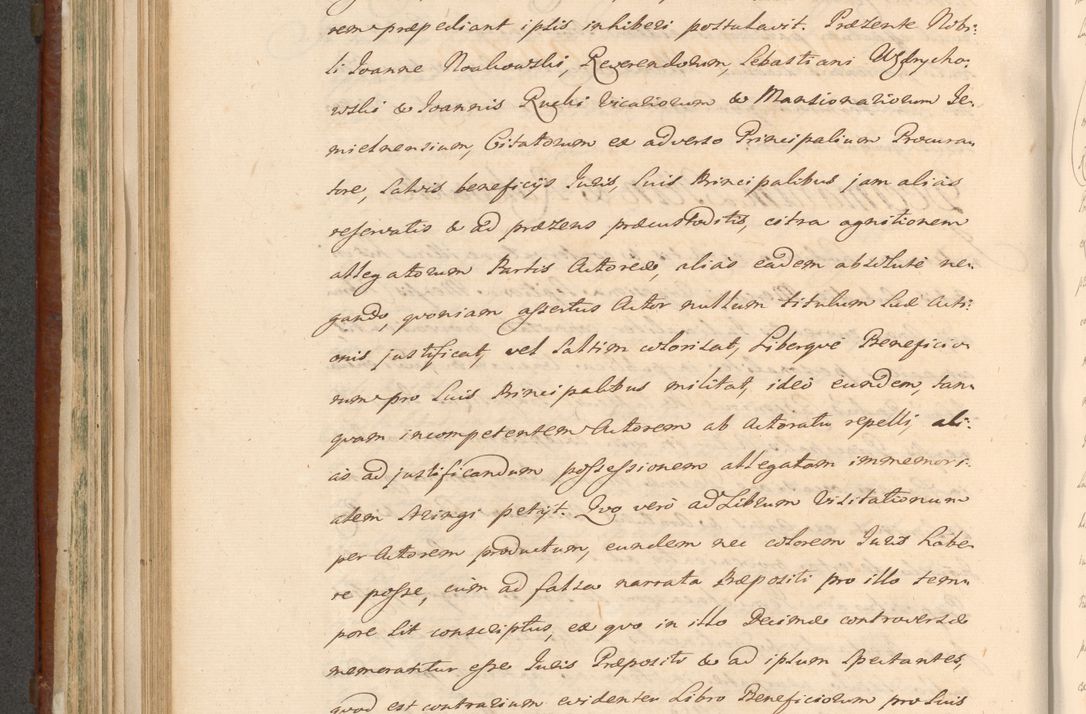 rem præpediant ipsis inhiberi postulavit. Præsente Nobi:
li Joanne Noakowski, Reverendorum, Sebastiani Węndrycho,
wski & Joannis Rucki Vicariorum & Mansionariorum Je,
mielnensium, Citatorum ex adverso Principalium Procura,
tore, Salvis beneficijs Juris, Suis Principalibus jam alias
reservatis & ad præsens præcustoditis, citra agnitionem
allegatorum Partis Actoreæ, alias eadem absolutè ne,
gando, quoniam assertus Actor nullum titulum suæ Acti:
onis justificat, vel saltim colorisat, Liberque Beneficio,
rum pro Suis Principalibus militat, ideò eundem, tan,
quam incompetentem Actorem ab Actoratu repelli, ali:
as ad justificandum possessionem allegatam immemori:
alem stringi petijt. Quo verò ad Librum Visitationum
per Actorem productum, eundem nec colorem Juris habe,
re posse, cùm ad falsa narrata Præpositi pro illo tem,
pore sit conscriptus, ex quo in illo Decimæ controversæ
memorantur esse Juris Præpositi & ad ipsum spectantes,
quod est contrarium evidenter Libro Beneficiorum pro Suis